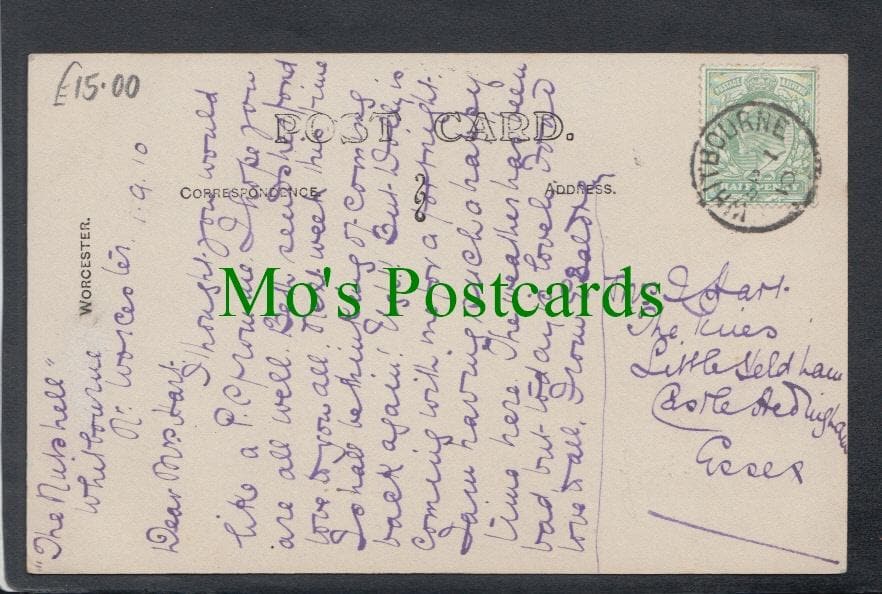 £15.00
POST CARD.
CORRESPONDENCE
ADDRESS.
WORCESTER.
WHITBOURNE
HALFPENNY
Mo's Postcards
"The Nutshell"
Whitbourne
Nr. Worcester. 1.9.10
Dear Mrs Hart.
I thought you would
like a P.C. from me I hope you
are all well. Bessie sends her fond
love to you all. Next week this time
I shall be thinking of coming
back again! Ugh! But Dolly is
coming with me for a fortnight.
I am having such a happy
time here. The weather has been
bad but to-day is lovely. Fond
love to all. From
Mrs J Hart.
The Pines
Little Yeldham
Castle Hedingham
Essex